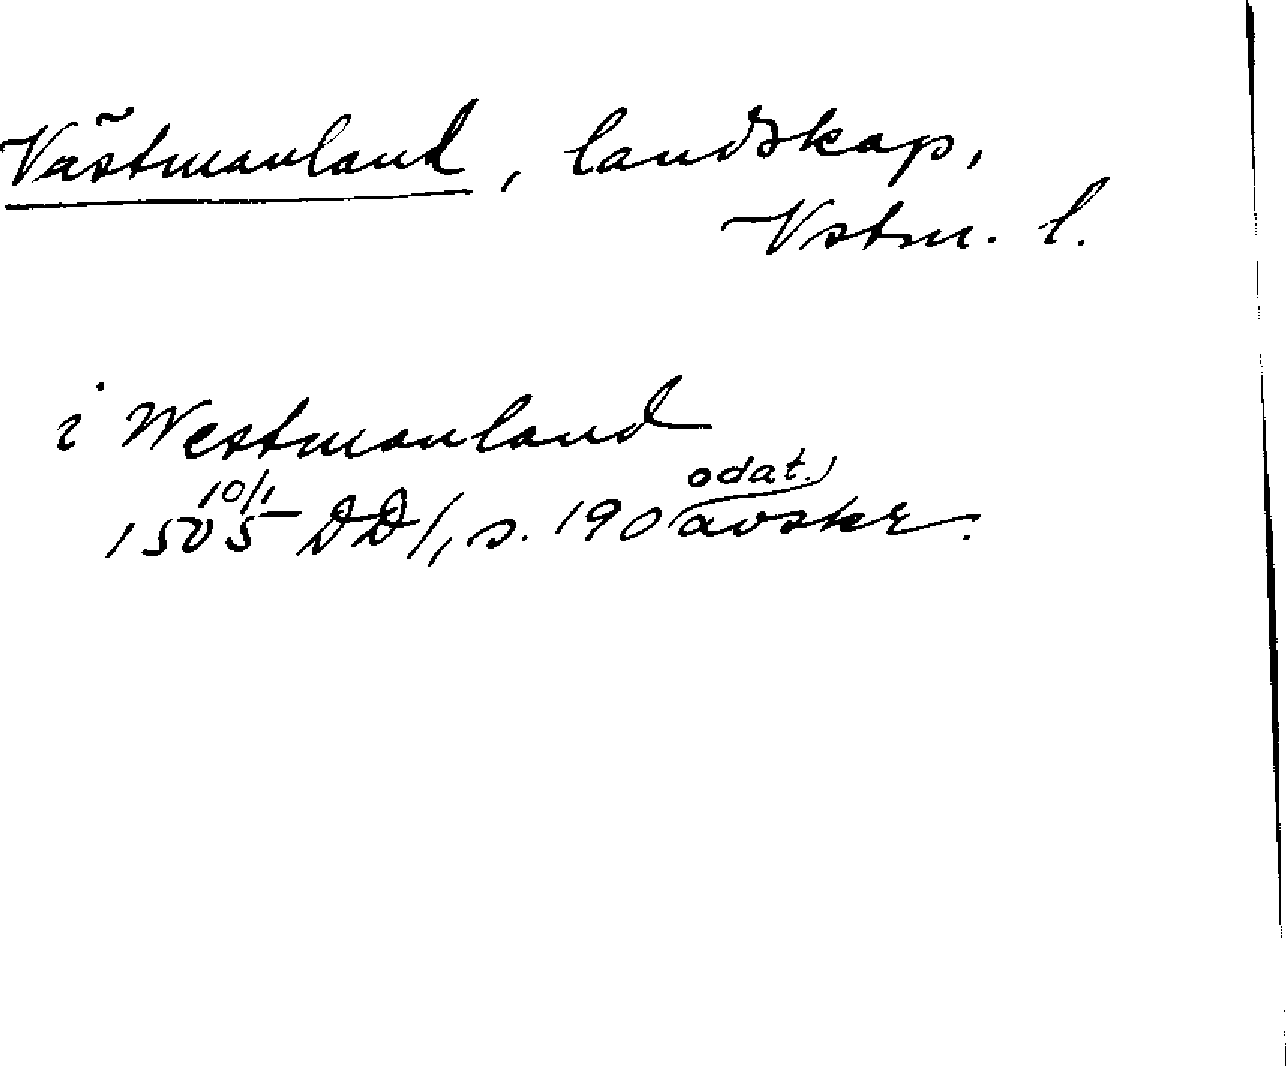 Västmanland, landskap,
Vstm. l.
i Westmanland
10/1 odat.
1505 DD1, s. 190 avskr.